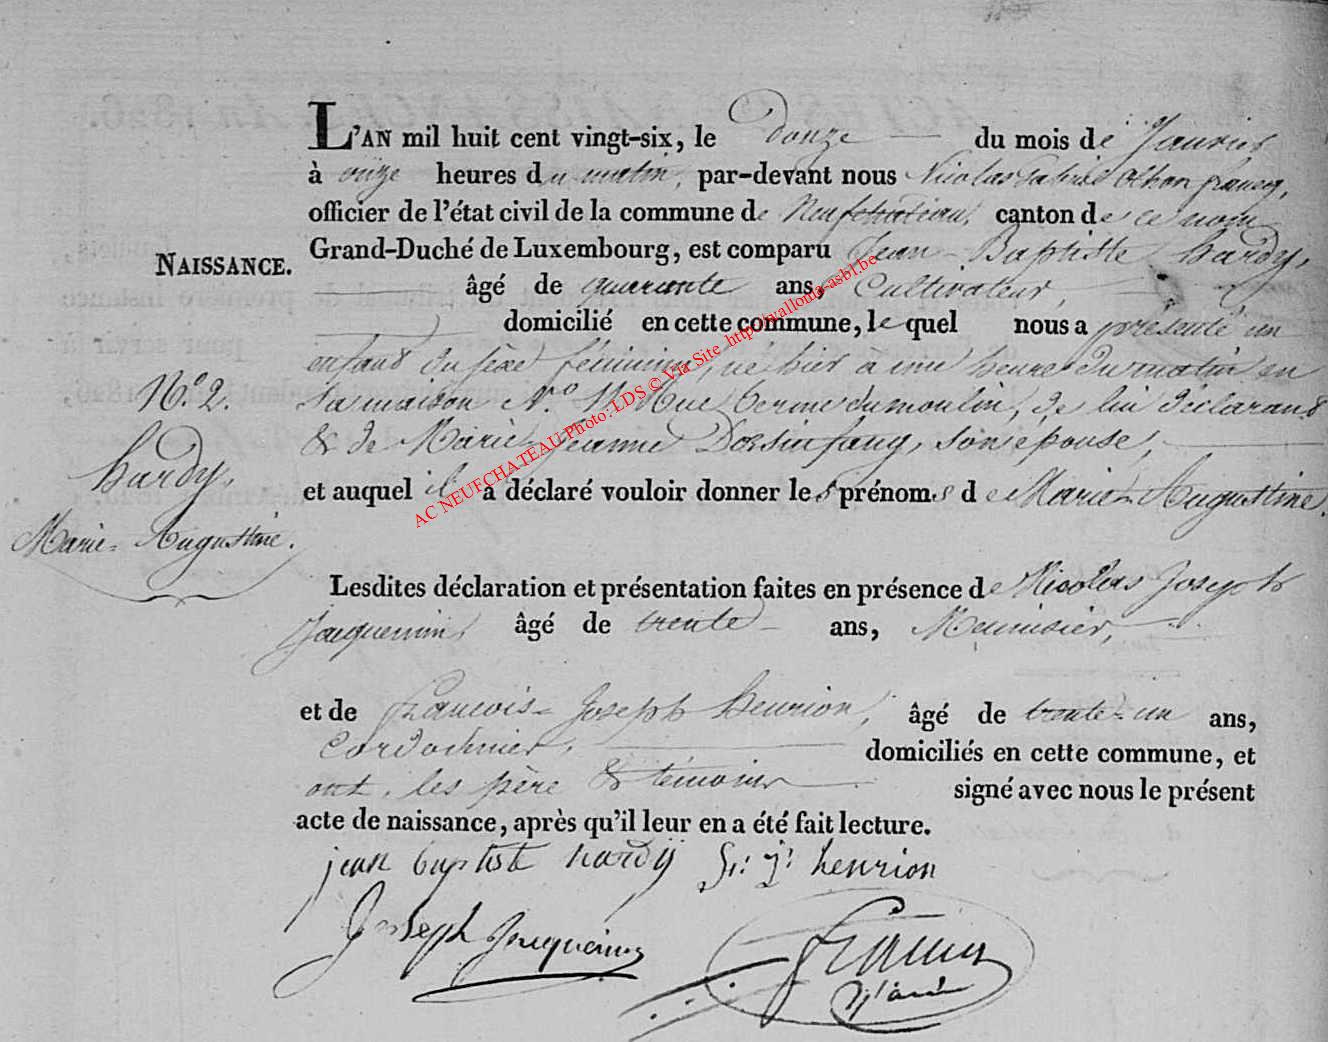 L'AN mil huit cent vingt-six, le douze du mois de Janvier,
à onze heures du matin, par-devant nous Nicolas
officier de l'état civil de la commune de Neufchateau, canton de ce nom
Grand-Duché de Luxembourg, est comparu Jean-Baptiste hardy,
NAISSANCE.
âgé de quarante ans, Cultivateur,
domicilié en cette commune, le quel nous a présenté un
enfant du sexe féminin, né hier à une heure du matin en
sa maison N.º Rue du moulin, de lui déclarant
& de Marie-Jeanne son épouse,
et auquel il a déclaré vouloir donner les prénoms de Marie-Augustine.
N.º 2.
hardy,
Marie-Augustine.
Lesdites déclaration et présentation faites en présence de Nicolas Joseph
Jacquemin, âgé de trente ans, Meunier,
et de François-Joseph henrion, âgé de trente-un ans,
Cordonnier, domiciliés en cette commune, et
ont, les père & témoins signé avec nous le présent
acte de naissance, après qu'il leur en a été fait lecture.
jean baptiste hardy fr: j: henrion
Joseph Jacquemin
AC NEUFCHATEAU Photo: LDS © Via Site http://wallonia-asbl.be